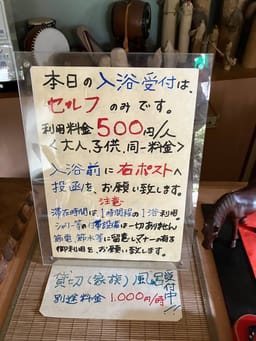 本日の入浴受付は、
セルフのみです。
利用料金500円/人
<大人、子供、同一料金>
入浴前に右ポストへ
投函を、お願い致します。
注意
滞在時間は1時間弱の1浴利用
シャワー等の付帯設備は一切ありません
節電、節水等に留意しマナーの有る
御利用を、お願い致します。
貸切(家族)風呂受付中!!
別途料金 1,000円/時